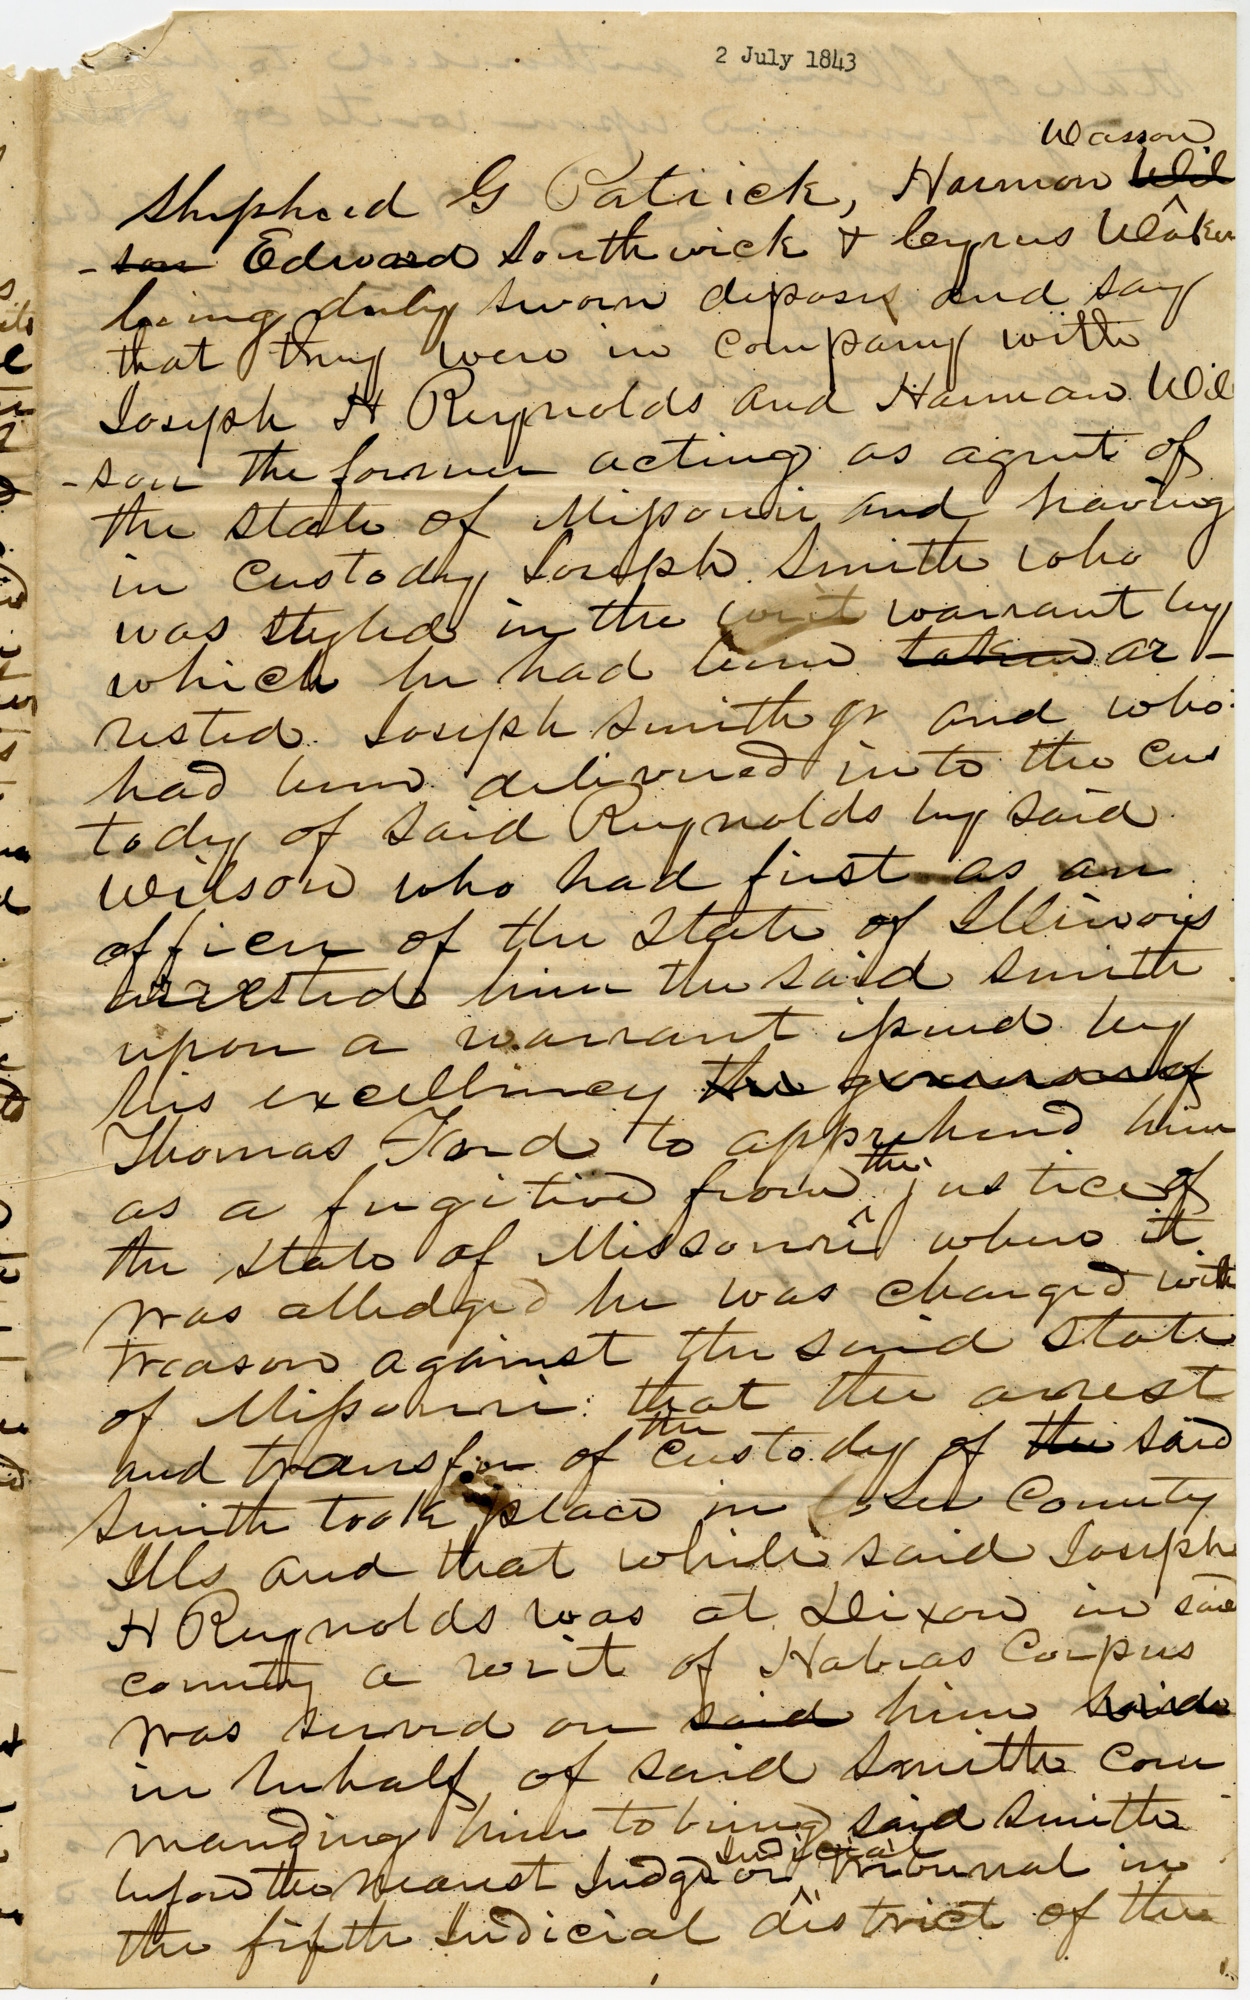 2 July 1843
Wasson
Shepherd G Patrick, Harmon Wil
-son Edward Southwick & Cyrus Walker
being duly sworn deposes and say
that they were in company with
Joseph H Reynolds and Harman Wil
-son the former acting as agent of
the State of Missouri and having
in custody Joseph Smith who
was styled in the writ warrant by
which he had been taken ar-
rested Joseph Smith Jr and who
had been delivered into the Cus
tody of said Reynolds by said
Wilson who had first as an
officer of the State of Illinois
arrested him the said Smith
upon a warrant issued by
his excellency the governor of
Thomas Ford to apprehend him
as a fugitive from the justice of
the State of Missouri where it
was alledged he was charged with
treason against the said State
of Missouri: that the arrest
and transfer of the custody of the said
Smith took place in Lee County
Ills and that while said Joseph
H Reynolds was at Dixon in said
county a writ of Habeas Corpus
was served on said him
in behalf of said Smith com
manding him to bring said Smith
before the nearest Judge or Judicial Tribunal in
the fifth Judicial district of the